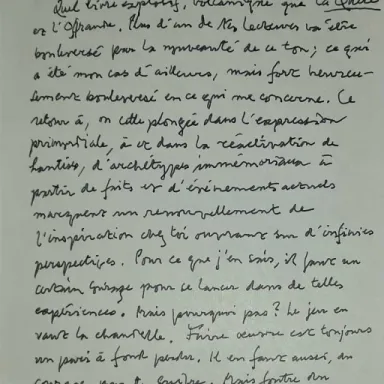 Quel livre explosif, volcanique que La Quête
et l'Offrande. Plus d'un de tes lecteurs va être
bouleversé par la nouveauté de ce ton ; ce qui
a été mon cas d'ailleurs, mais fort heureu-
sement bouleversé en ce qui me concerne. Ce
retour à, ou cette plongée dans l'expression
primordiale, à et dans la réactivation de
hantises, d'archétypes immémoriaux à
partir de faits et d'événements actuels
marquent un renouvellement de
l'inspiration chez toi ouvrant sur d'infinies
perspectives. Pour ce que j'en sais, il faut un
certain courage pour se lancer dans de telles
expériences. Mais pourquoi pas ? Le jeu en
vaut la chandelle. Faire œuvre est toujours
un pari à fond perdu. Il en faut aussi, du
courage, pour Mais foutre